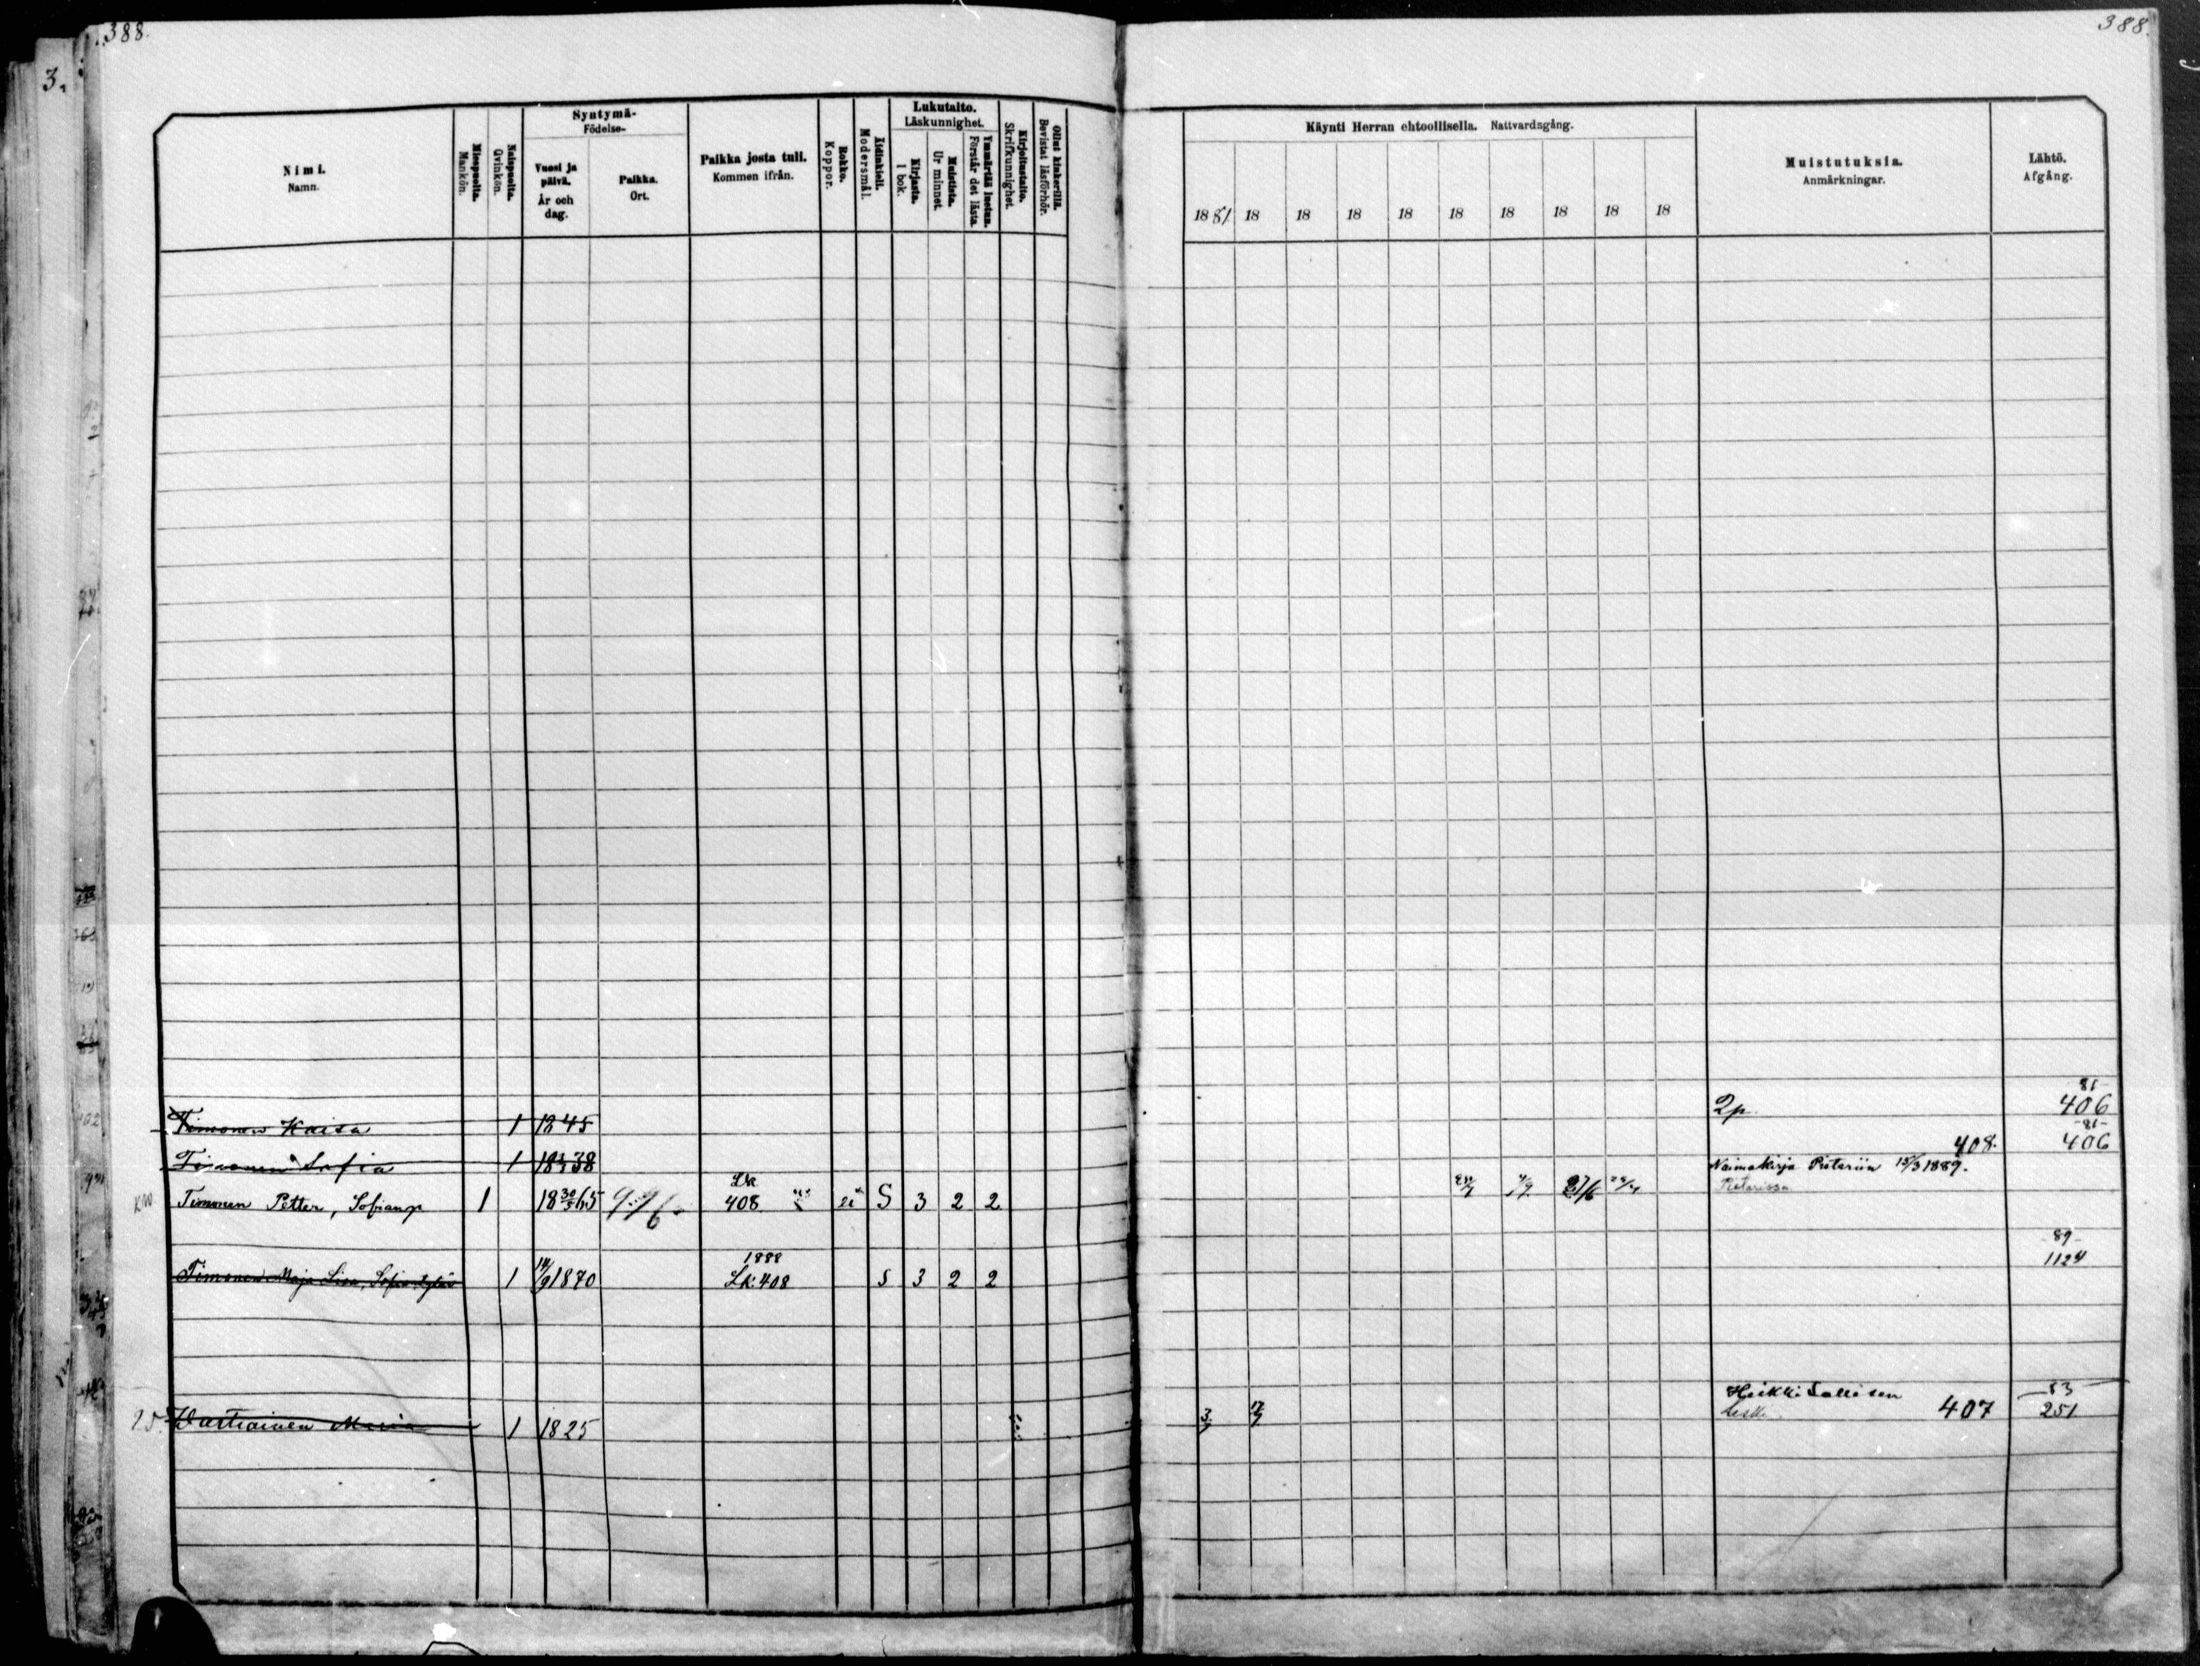 388.
388.
3.
Nimi.
Namn.
Miespuolta.
Mankön.
Naispuolta.
Qvinkön.
Syntymä-
Födelse-
Vuosi ja päivä.
År och dag.
Paikka.
Ort.
Paikka josta tuli.
Kommen ifrån.
Rokko.
Koppor.
Äidinkieli.
Modersmål.
Lukutaito.
Läskunnighet.
Kirjasta.
I bok.
Muistista.
Ur minnet.
Ymmärtää luetun.
Förstår det lästa.
Kirjoitustaito.
Skrifkunnighet.
Ollut kinkerillä.
Bevistat läsförhör.
Käynti Herran ehtoollisella. Nattvardsgång.
1881 18 18 18 18 18 18 18 18 18
Muistutuksia.
Anmärkningar.
Lähtö.
Afgång.
Timonen Kaisa 1 1845 2p. 81 406
Timonen Sofia 1 18 38 408. 81 406
Naimakirja Pietariin 15/3 1889.
Timonen Petter, 1 18 65 Lk 408 S 3 2 2 27/6 Pietarissa
Timonen Maja Lisa, Sofia 1 14/9 1870 1888 Lk: 408 S 3 2 2 89 1124
Wartiainen Maria 1 1825 3/7 17/7 Heikki Sallisen leski. 407 83 251